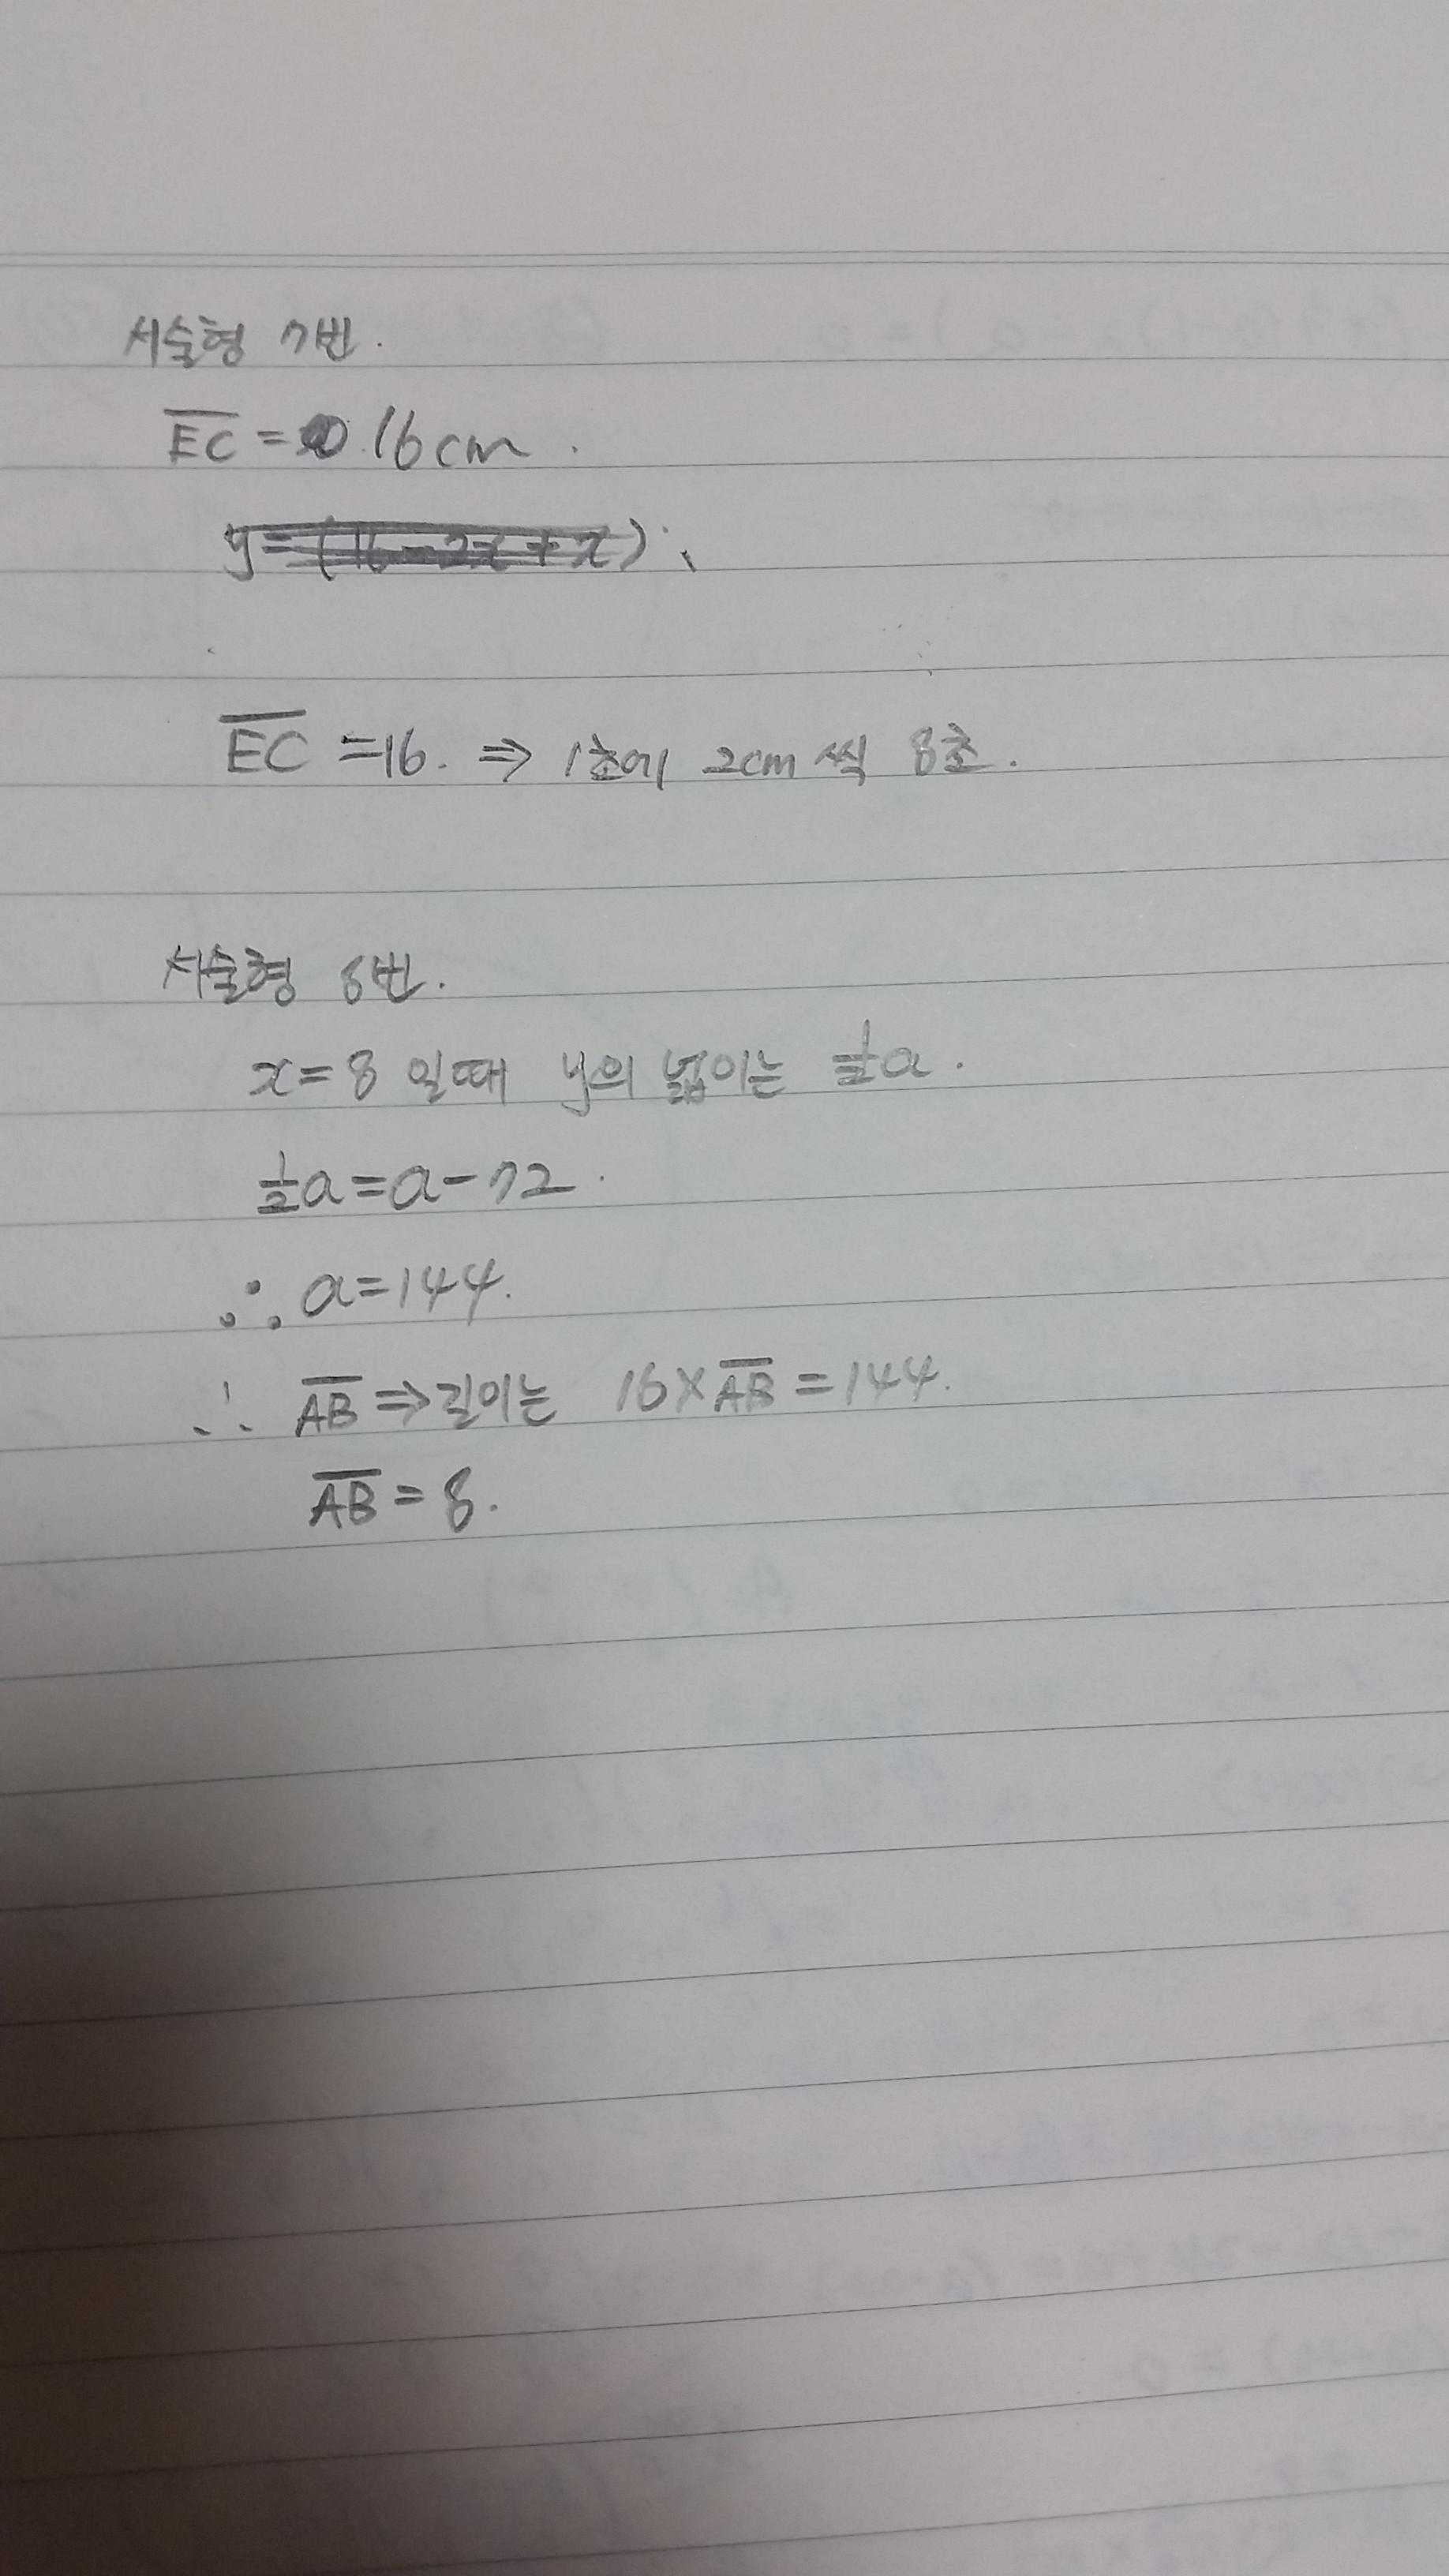 서술형 7번.
EC = 16cm.
y=(16-2x+x)
EC =16. ⇒ 1초에 2cm씩 8초.
서술형 8번.
x=8 일때 y의 넓이는 ½a.
½a=a-72.
∴ a=144.
∴ AB ⇒길이는 16×AB=144.
AB = 8.